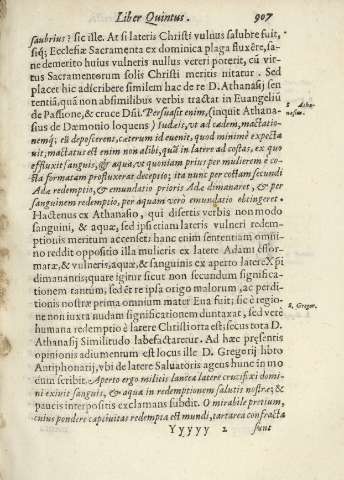 Liber Quintus. 907
saubrius? sic ille. At si lateris Christi vulnus salubre fuit,
siq; Ecclesiæ Sacramenta ex dominica plaga fluxêre, sa-
ne demerito huius vulneris nullus veteri poterit, cū vir-
tus Sacramentorum solis Christi meritis nitatur. Sed
placet hic adscribere similem hac de re D. Athanasij sen
tentiã, quã non absimilibus verbis tractat in Euangeliũ
de Passione, & cruce Dñi. Persuasit enim, (inquit Athana-
sius de Dæmonio loquens) Iudæis, vt ad cædem, mactatio-
nemq́; eũ deposcerent, cæterum id euenit, quod minimè expecta
uit, mactatus est enim non alibi, quã in latere ad costas, ex quo
effluxit sanguis, & aqua, vt quoniam prius per mulierem è co-
sta formatam profluxerat deceptio; ita nunc per costam secundi
Adæ redemptio, & emundatio prioris Adæ dimanaret, & per
sanguinem redemptio, per aquam verò emundatio obtingeret.
Hactenus ex Athanasio, qui disertis verbis non modo
sanguini, & aquæ, sed ipsi etiam lateris vulneri redem-
ptionis meritum accenset: hanc enim sententiam omni-
no reddit oppositio illa mulieris ex latere Adami effor-
matæ, & vulneris, aquæ, & sanguinis ex aperto latere Xpi
dimanantis; quare igitur sicut non secundum significa-
tionem tantum, sed et re ipsa origo malorum, ac perdi-
tionis nostræ prima omnium mater Eua fuit; sic è regio-
ne non iuxta nudam significationem duntaxat, sed verè
humana redemptio è latere Christi orta est; secus tota D.
Athanasij Similitudo labefactaretur. Ad hæc præsentis
opinionis adiumentum est locus ille D. Gregorij libro
Antiphonarij, vbi de latere Saluatoris agens hunc in mo
dum scribit. Aperto ergo militis lancea latere crucifixi domi-
ni exiuit sanguis, & aqua in redemptionem salutis nostræ; &
paucis interpositis exclamans subdit. O mirabile pretium,
cuius pondere captiuitas redempta est mundi, tartarea confracta
Yyyyy 2 sunt
S. Atha-
nasius.
S. Gregor.